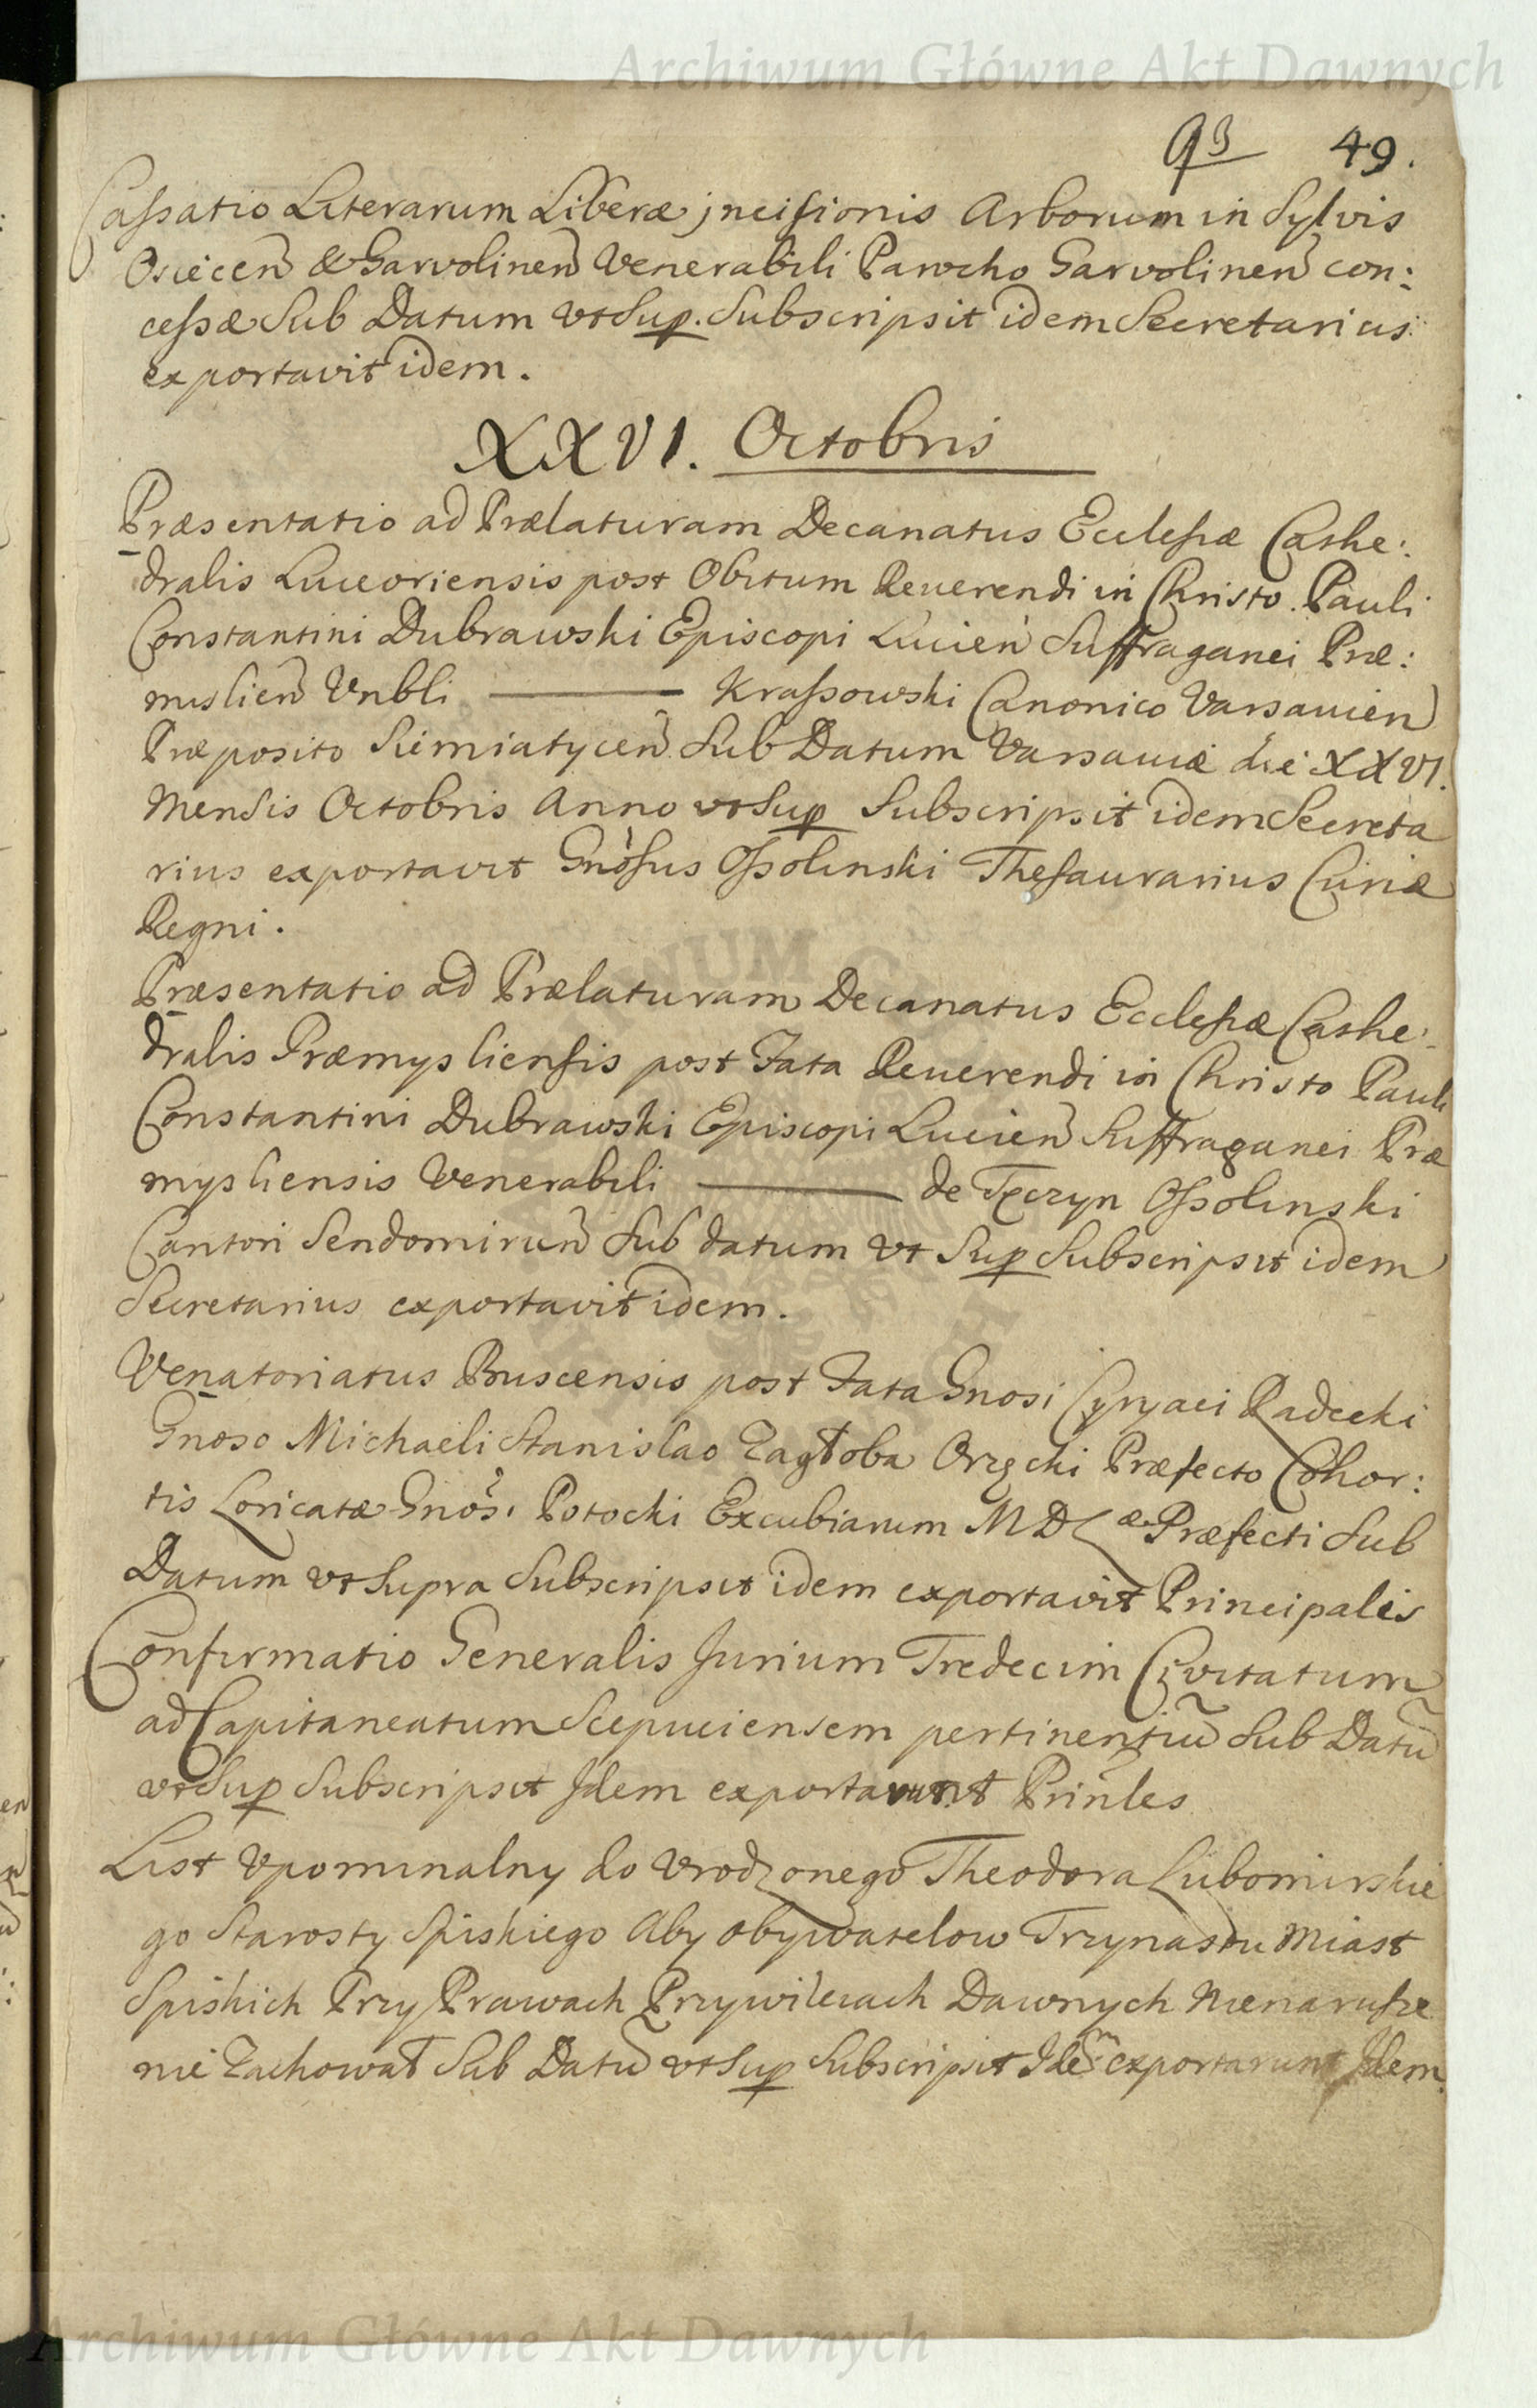 Archiwum Główne Akt Dawnych
93 49.
Cassatio Literarum Liberæ jncisionis Arborum in Sylvis
Osiecen̄ & Garvolinen̄ Venerabili Parocho Garvolinen̄ con:
cessæ Sub Datum vt Sup. Subscripsit idem Secretarius
exportavit idem.
XXVI. Octobris
Præsentatio ad Prælaturam Decanatus Ecclesiæ Cathe:
dralis Luceoriensis post Obitum Reuerendi in Christo Pauli
Constantini Dubrawski Episcopi Lucien̄ Suffraganei Præ:
mislien̄ Vnbli ——— Krassowski Canonico Varsauien̄
Præposito Siemiatycen̄ Sub Datum Varsauiæ die XXVI.
Mensis Octobris Anno vt Sup Subscripsit idem Secreta
rius exportavit Gnosus Ossolinski Thesaurarius Curiæ
Regni.
Præsentatio ad Prælaturam Decanatus Ecclesiæ Cathe:
dralis Præmysliensis post Fata Reuerendi in Christo Pauli
Constantini Dubrawski Episcopi Lucien̄ Suffraganei Præ
mysliensis Venerabili ——— de Tęczyn Ossolinski
Cantori Sendomirien̄ Sub datum vt Sup Subscripsit idem
Secretarius exportavit idem.
Venatoriatus Buscensis post Fata Gnosi Cyryaci Radecki
Gnoso Michaeli Stanislao Zagłoba Orzęcki Præfecto Cohor:
tis Loricatæ Gnos. Potocki Excubiarum M D L æ Præfecti Sub
Datum vt Supra Subscripsit idem exportavit Principalis
Confirmatio Generalis Jurium Tredecim Civitatum
ad Capitaneatum Scepuciensem pertinentiū Sub Datū
vt Sup Subscripsit Jdem exportarunt Prinles
List Vpominalny do Vrodzonego Theodora Lubomirskie
go Starosty Spiskiego Aby obywatelow Trzynastu Miast
Spiskich Przy Prawach Przywileiach Dawnych Nienarusze
nie Zachował Sub Datū vt Sup Subscripsit Idem exportarunt Jdem.
Archiwum Główne Akt Dawnych